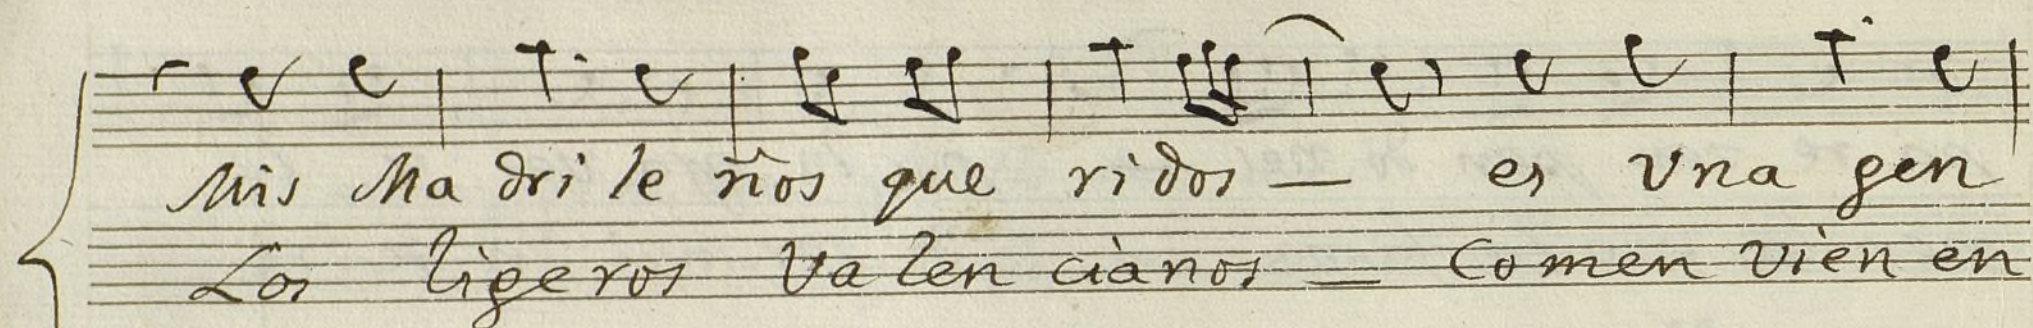 Mis Ma dri le ños que ridos — es Vna gen
Los ligeros Va len cianos — Comen vien en